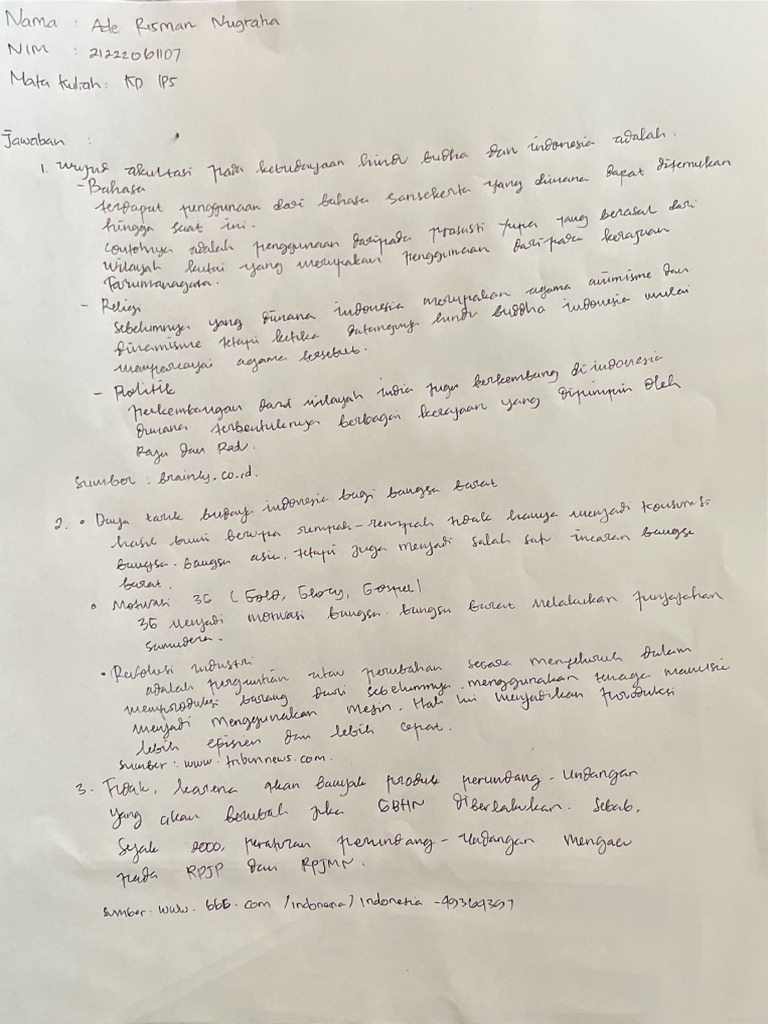 Nama : Ade Risman Nugraha
NIM : 21222061107
Mata Kuliah : KD IPS
Jawaban :
1. Wujud akultasi pada kebudayaan hindu budha dan indonesia adalah :
- Bahasa
terdapat penggunaan dari bahasa sansekerta yang dimana dapat ditemukan
hingga saat ini.
Contohnya adalah penggunaan daripada prasasti yupa yang berasal dari
wilayah kutai yang merupakan penggunaan daripada kerajaan
Tarumanagara.
- Religi
Sebelumnya yang dimana indonesia merupakan agama animisme dan
dinamisme tetapi ketika datangnya hindu buddha indonesia mulai
mempercayai agama tersebut.
- Politik
perkembangan dari wilayah india juga berkembang di indonesia
dimana terbentuknya berbagai kerajaan yang dipimpin oleh
Raja dan
Sumber : brainly.co.id.
2. • Daya tarik budaya indonesia bagi bangsa barat
hasil bumi berupa rempah-rempah tidak hanya menjadi konsumsi
bangsa-bangsa asia. tetapi juga menjadi salah satu incaran bangsa
barat.
• Motivasi 3G (Gold, Glory, Gospel)
3G menjadi motivasi bangsa-bangsa barat melakukan penjajahan
Samudera.
• Revolusi industri
adalah pergantian atau perubahan secara menyeluruh dalam
memproduksi barang dari sebelumnya menggunakan tenaga manusia
menjadi menggunakan mesin. Hal ini menjadikan produksi
lebih efisien dan lebih cepat.
Sumber : www.tribunnews.com.
3. Tidak, karena akan banyak produk perundang-undangan
yang akan berubah jika GBHN diberlakukan. Sebab,
Sejak 2000, peraturan perundang-undangan mengacu
pada RPJP dan RPJMN.
Sumber : www.bbc.com/indonesia/indonesia-49369397